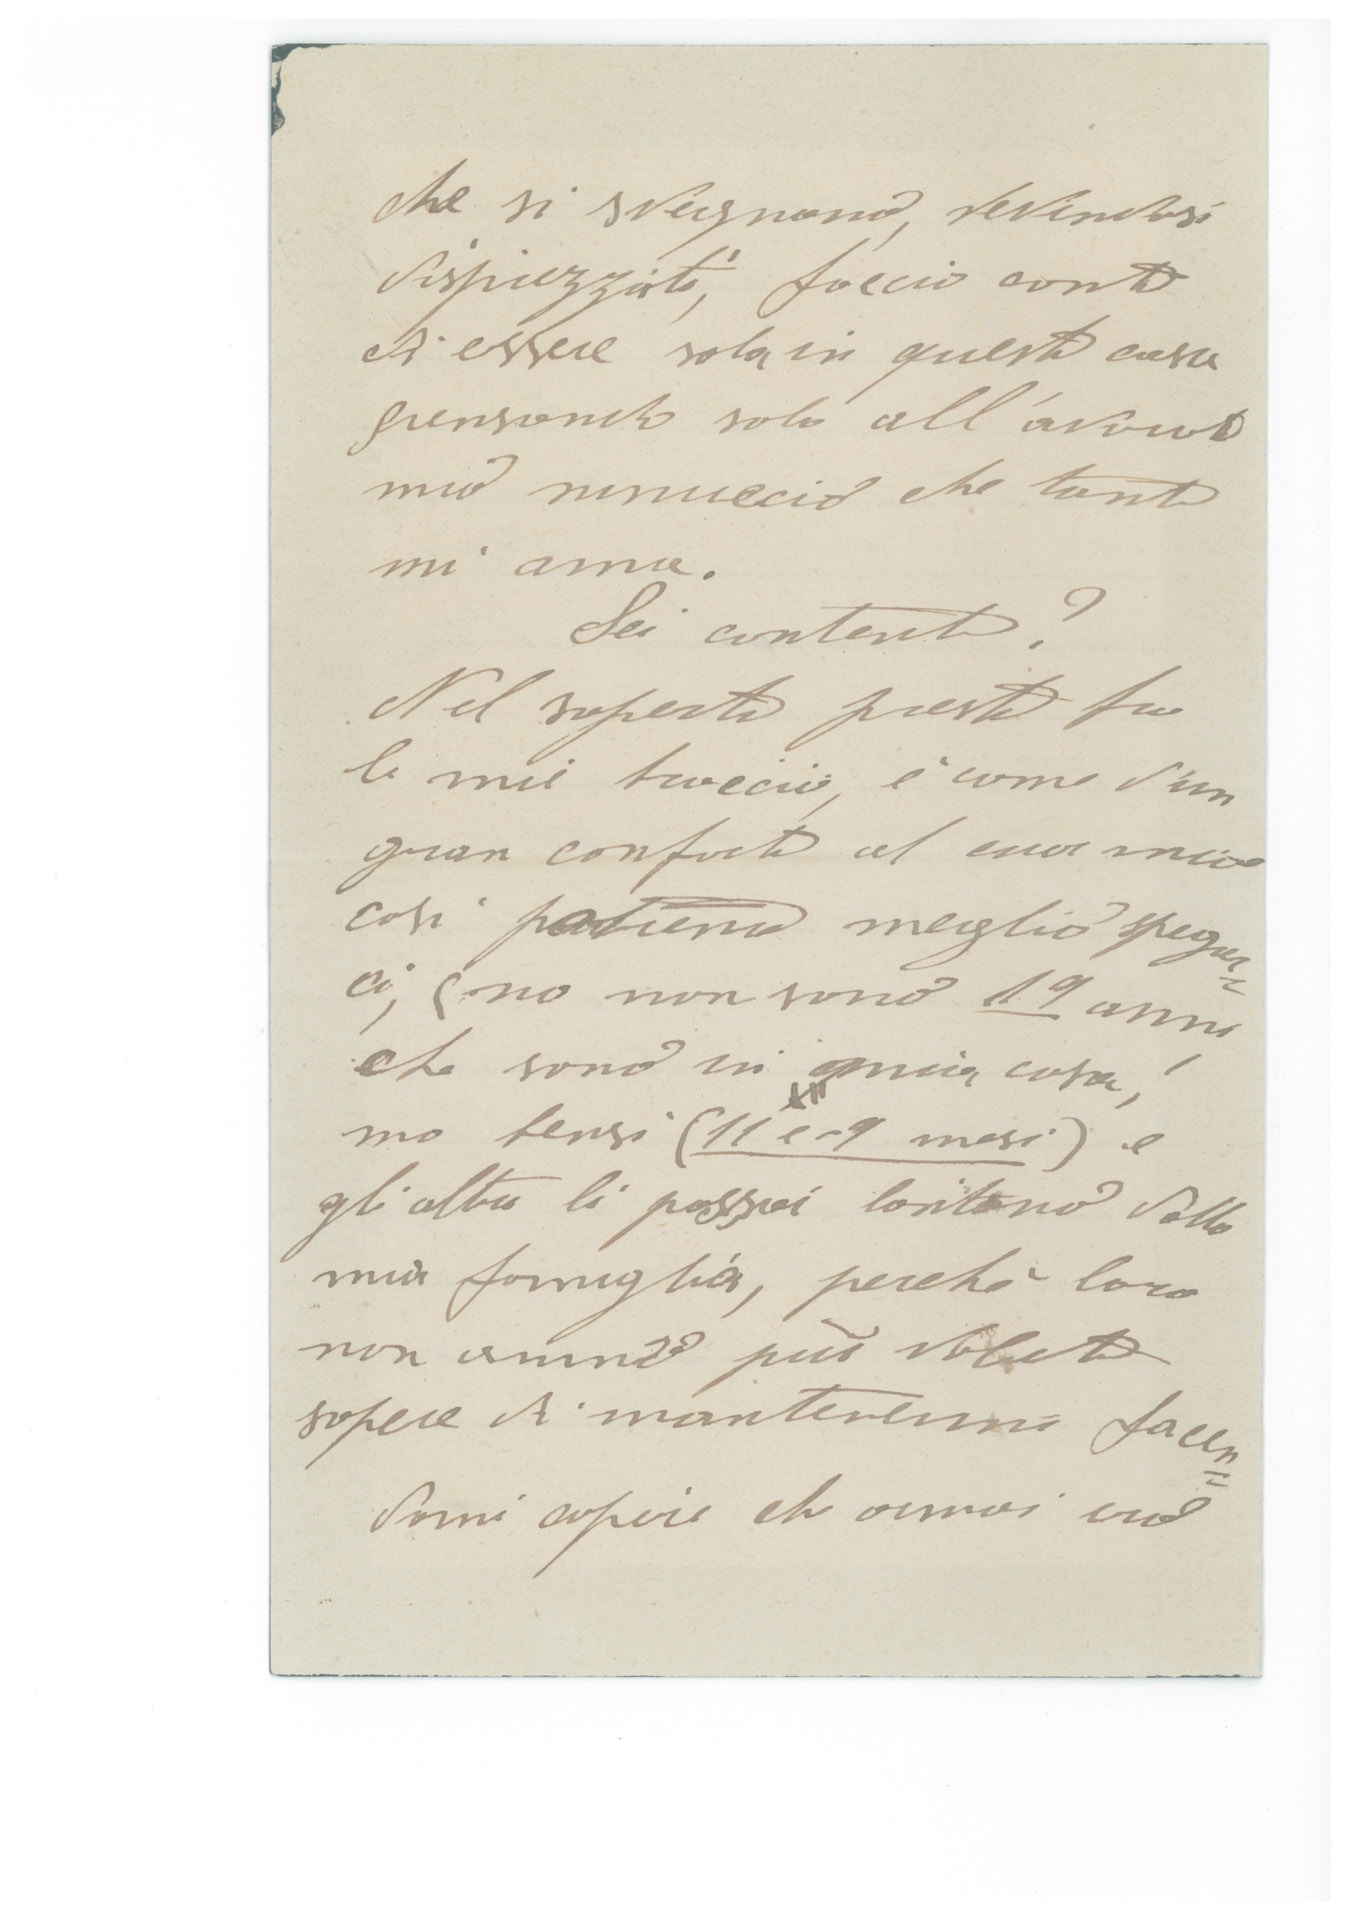 che si svegnano, vedendosi
dispiezzati, faccio conto
di essere sola in questa casa
pensando solo all'avocato
mio ninuccio che tanto
mi ama.
Sei contento?
Nel saperti presto fra
le mie braccia, è come d'un
gran conforto al cuor mio
così potremo meglio spegar=
ci, (no non sono 19 anni
che sono in mia casa,
ma bensi (11 e 9 mesi) e
XII
gli altri li passai lontano dalla
mia famiglia, perché loro
non anno più voluto
sapere di mantenermi facen=
domi capire che ormai ero